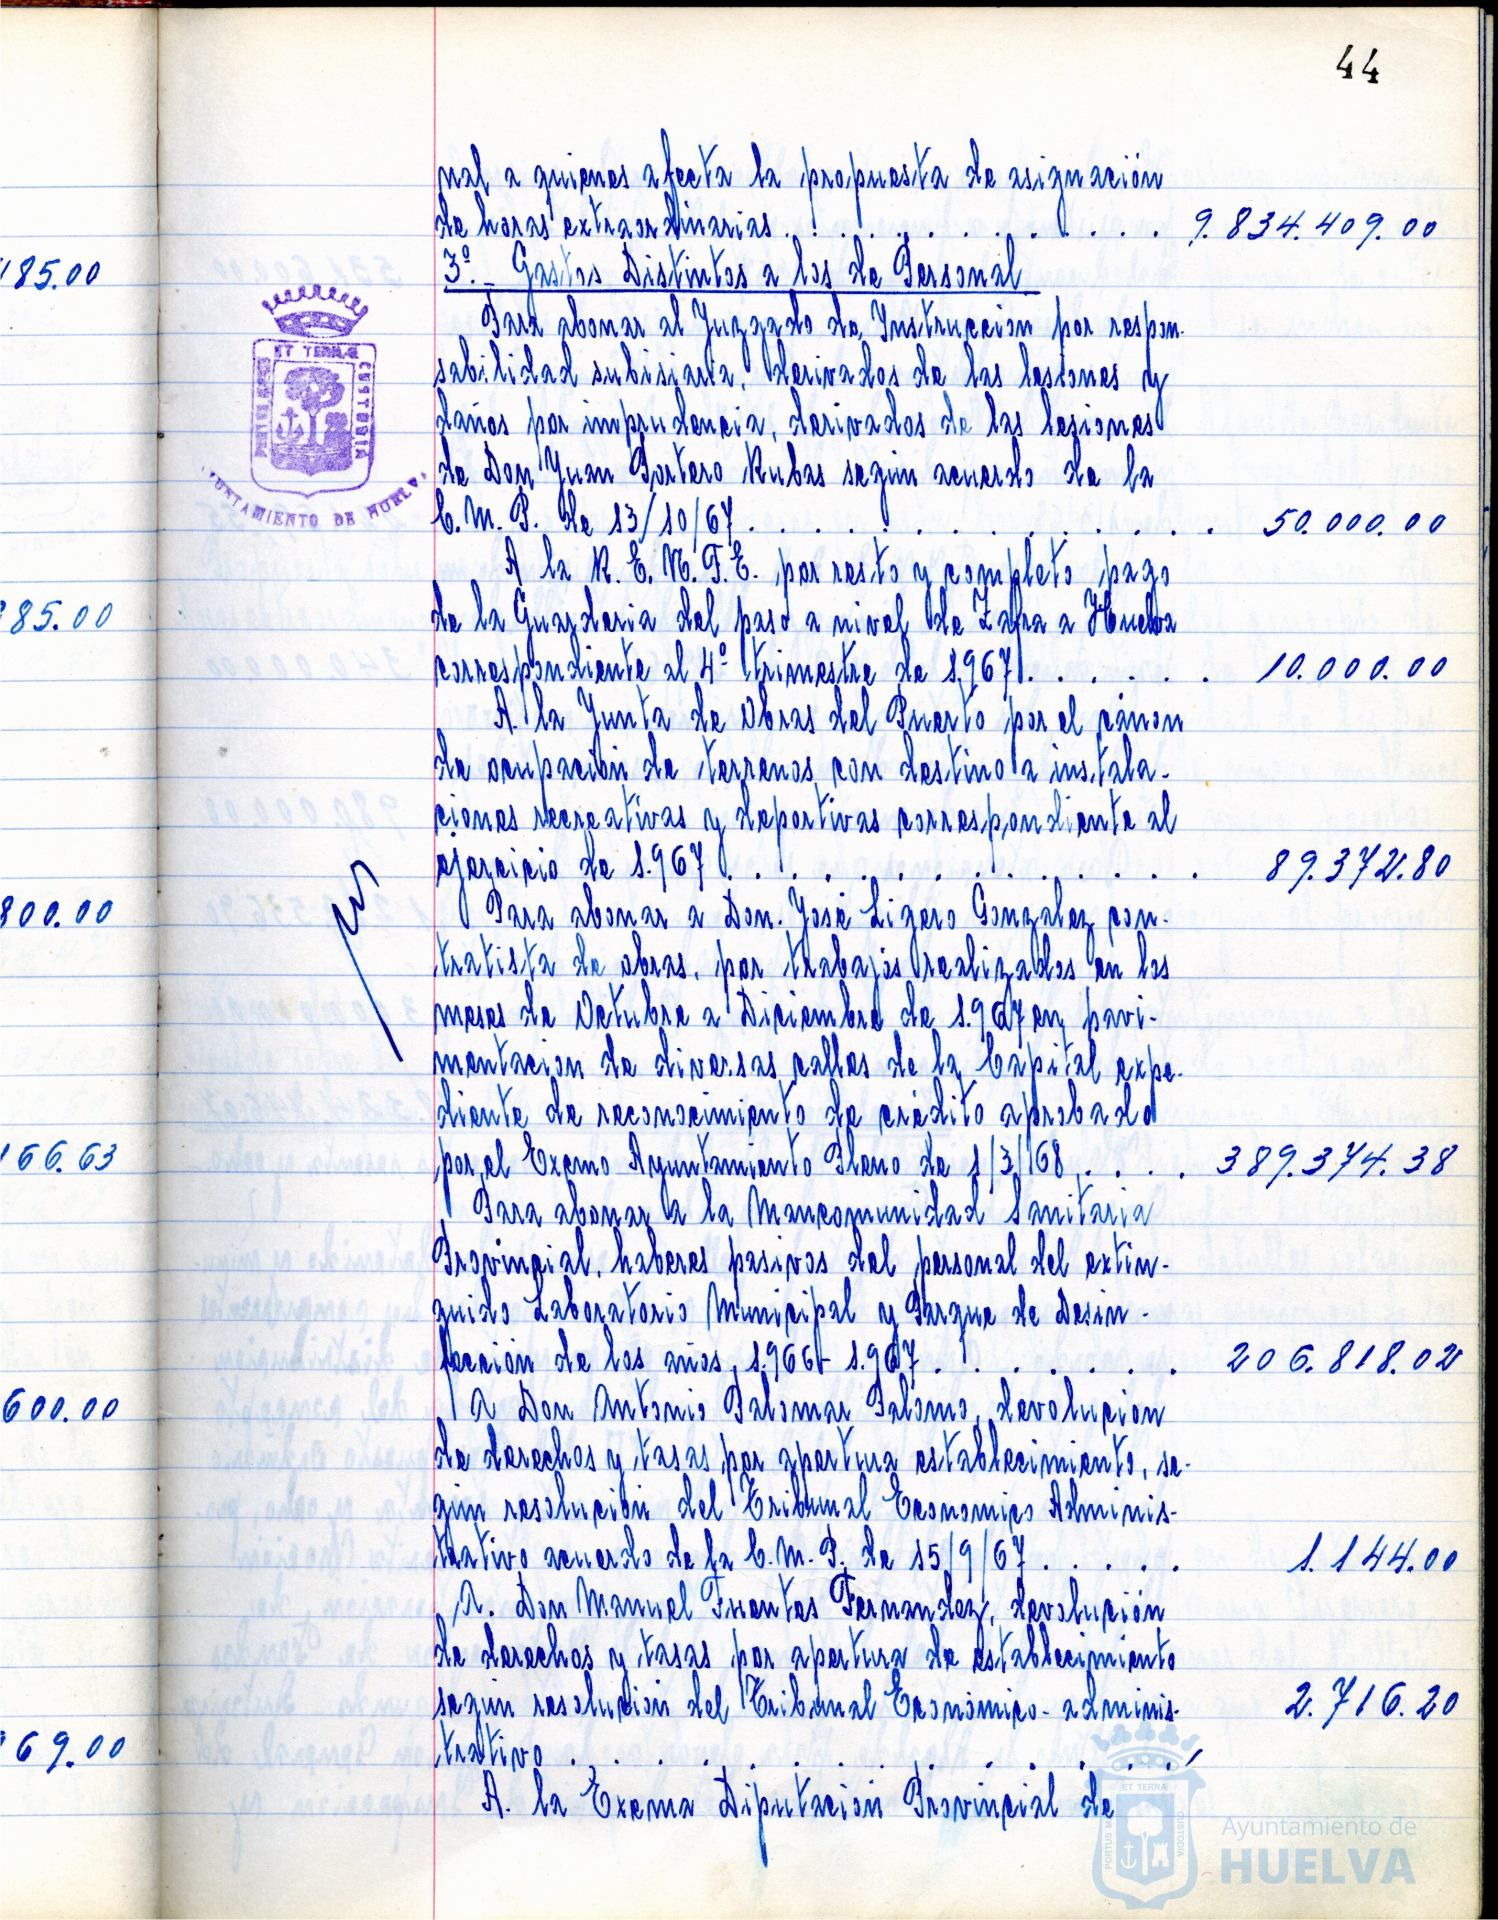 44
nal a quienes afecta la propuesta de asignación
de horas extraordinarias . . . . . . . . . . . . . 9.834.409.00
185.00
3º.- Gastos Distintos a los de Personal
Para abonar al Juzgado de Instruccion por respon-
sabilidad subisiaria, derivados de las lesiones y
daños por imprudencia, derivados de las lesiones
de Don Juan Portero Rubas según acuerdo de la
C.M.P. de 13/10/67 . . . . . . . . . . . . . . 50.000.00
ET TERRÆ
CUSTODIA
PORTUS MARIS
AYUNTAMIENTO DE HUELVA
A la R.E.N.F.E. por resto y completo pago
85.00
de la Guarderia del paso a nivel de Zafra a Huelva
correspondiente al 4º trimestre de 1.967 . . . . . . . 10.000.00
A la Junta de Obras del Puerto por el cánon
de ocupación de terrenos con destino a instala-
ciones recreativas y deportivas correspondiente al
ejercicio de 1.967 . . . . . . . . . . . . . . 89.372.80
800.00
Para abonar a Don. José Ligero Gonzalez con-
tratista de obras, por trabajos realizados en los
meses de Octubre a Diciembre de 1.967 en pavi-
mentacion de diversas calles de la Capital expe-
diente de reconocimiento de crédito aprobado
166.63
por el Excmo Ayuntamiento Pleno de 1/3/68 . . . . 389.374.38
Para abonar a la Mancomunidad Sanitaria
Provincial, haberes pasivos del personal del extin-
guido Laboratorio Municipal y Parque de Desin-
fección de los años, 1.966 - 1.967 . . . . . . . . 206.818.02
600.00
A Don Antonio Palomar Palomo, devolución
de derechos y tasas por apertura establecimiento, se-
gún resolución del Tribunal Economico Adminis-
trativo acuerdo de la C.M.P. de 15/9/67 . . . . . 1.144.00
A. Don Manuel Fuentes Fernandez, devolución
de derechos y tasas por apertura de establecimiento
según resolución del Tribunal Económico-adminis- 2.716.20
69.00
trativo . . . . . . . . . . . . . .
A. la Excma Diputación Provincial de
ET TERRÆ
CUSTODIA
PORTUS M
Ayuntamiento de
HUELVA